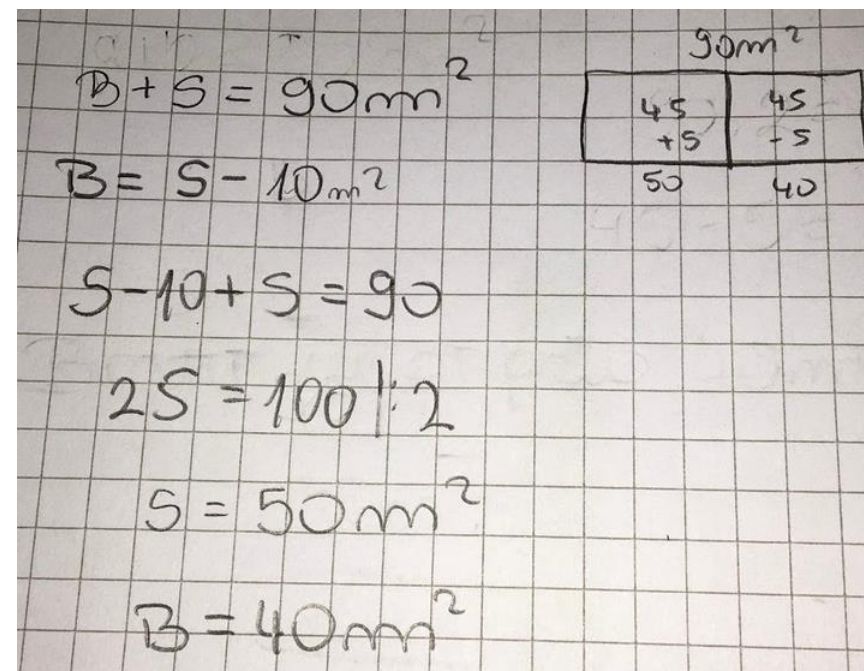 B + S = 90m²
B = S - 10m²
S-10+S = 90
2S = 100 |:2
S = 50m²
B = 40m²
90m²
45 45
+5 -5
50 40